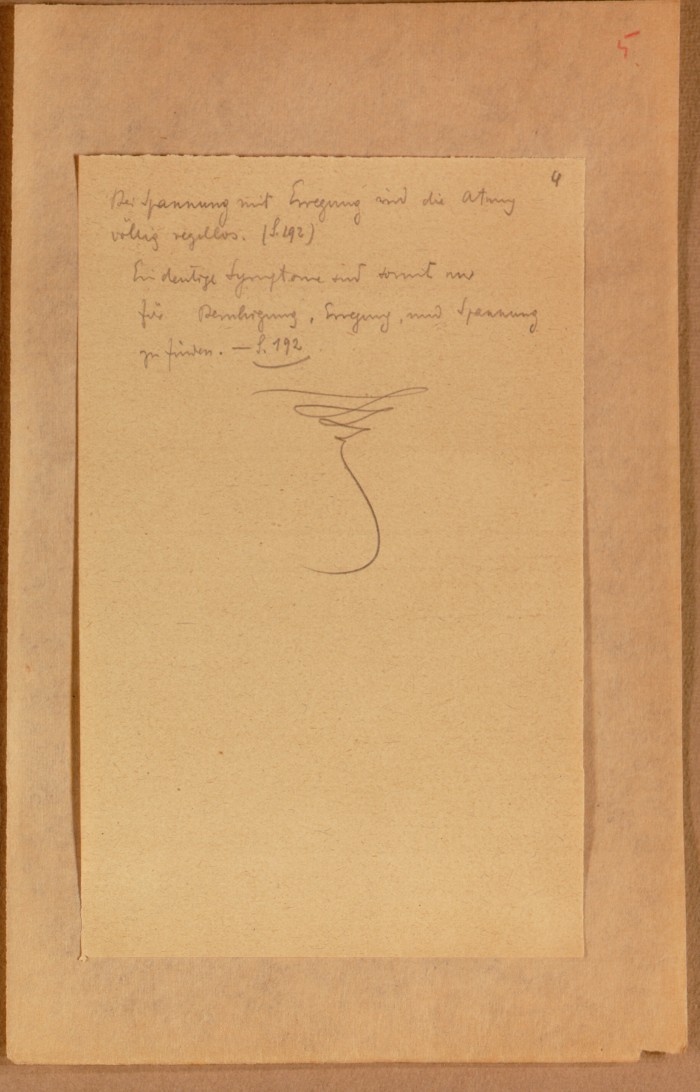 5
4
Bei Spannung mit Erregung wird die Atmung
völlig regellos. (S.192)
Eindeutige Symptome sind somit nur
für Beruhigung, Erregung, und Spannung
zu finden. — S. 192